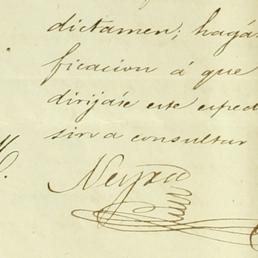 dictamen; hagá
ficacion á que
dirijase este exped
sin a consultar
Neyra